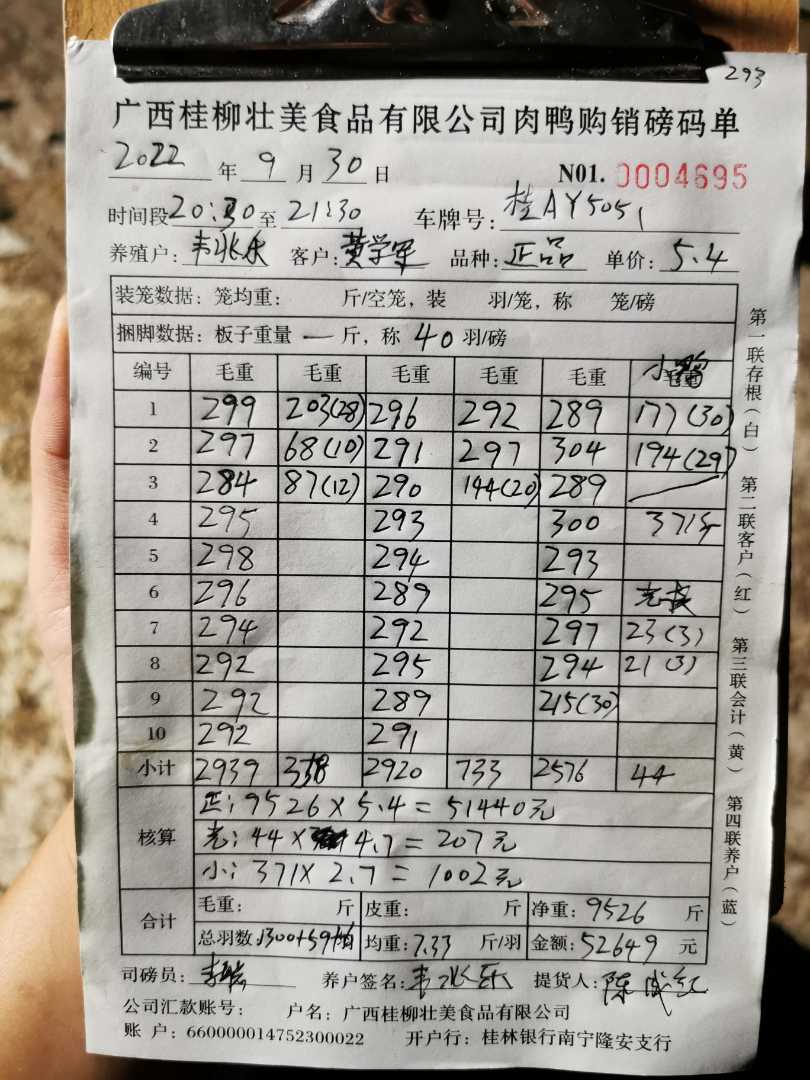 293
广西桂柳壮美食品有限公司肉鸭购销磅码单
2022 年 9 月 30 日 N01. 0004695
时间段 20:30 至 21:30 车牌号: 桂AY5051
养殖户: 韦兆乐 客户: 黄学军 品种: 正品 单价: 5.4
装笼数据: 笼均重: 斤/空笼, 装 羽/笼, 称 笼/磅
捆脚数据: 板子重量 一 斤, 称 40 羽/磅
编号 毛重 毛重 毛重 毛重 毛重 小
1 299 203(28) 296 292 289 177(30)
2 297 68(10) 291 297 304 194(29)
3 284 87(12) 290 144(20) 289
4 295 293 300 371斤
5 298 294 293
6 296 289 295
7 294 292 297 23(3)
8 292 295 294 21(3)
9 292 289 215(30)
10 292 291
小计 2939 358 2920 733 2576 44
核算
正: 9526×5.4=51440元
壳: 44×4.7=207元
小: 371×2.7=1002元
合计
毛重: 斤 皮重: 斤 净重: 9526 斤
总羽数: 1300+59 均重: 7.33 斤/羽 金额: 52649 元
司磅员: 养户签名: 韦兆乐 提货人: 陈
公司汇款账号: 户名: 广西桂柳壮美食品有限公司
账 户: 660000014752300022 开户行: 桂林银行南宁隆安支行
第一联存根(白) 第二联客户(红) 第三联会计(黄) 第四联养户(蓝)